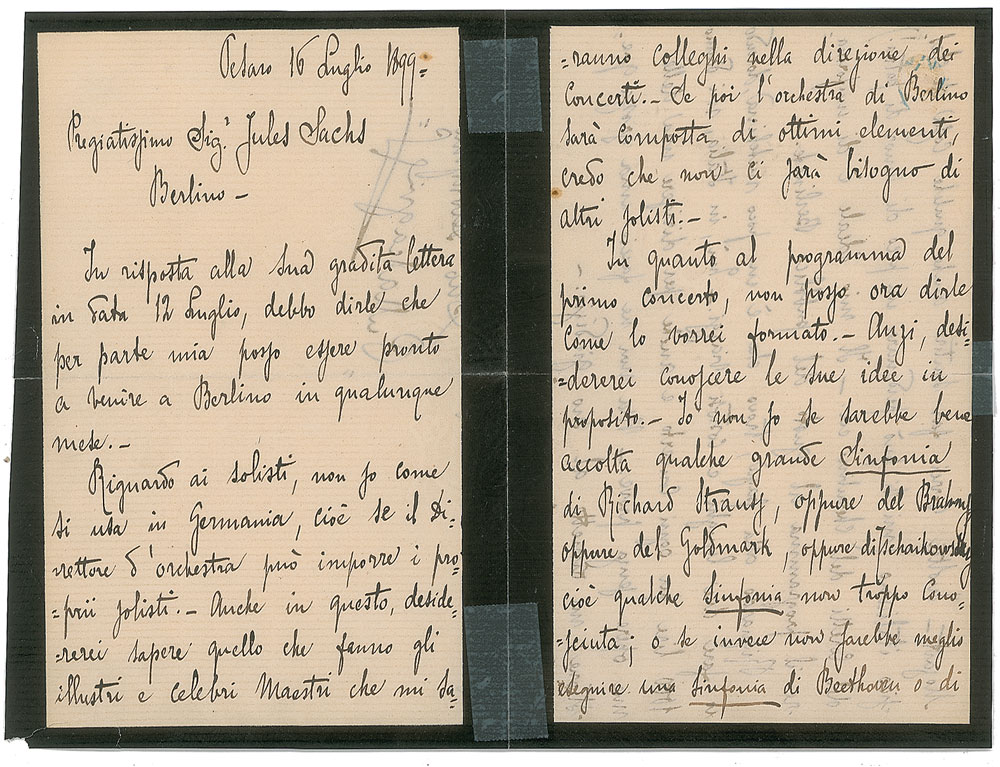 Pesaro 16 Luglio 1899=
Pregiatissimo Sig.r Jules Sachs
Berlino –
In risposta alla sua gradita lettera
in data 12 Luglio, debbo dirle che
per parte mia posso essere pronto
a venire a Berlino in qualunque
mese. –
Riguardo ai solisti, non so come
si usa in Germania, cioè se il Di-
rettore d'orchestra può imporre i pro-
=prii solisti. – Anche in questo, deside-
=rerei sapere quello che fanno gli
illustri e celebri Maestri che mi sa-
=ranno colleghi nella direzione dei
Concerti. – Se poi l'orchestra di Berlino
sarà composta di ottimi elementi,
credo che non ci sarà bisogno di
altri solisti. –
In quanto al programma del
primo concerto, non posso ora dirle
come lo vorrei formato. – Anzi, desi-
=dererei conoscere le sue idee in
proposito. – Io non so se sarebbe bene
accolta qualche grande Sinfonia
di Richard Strauss, oppure del Brahms
oppure del Goldmark oppure di Tschaikowsky
cioè qualche Sinfonia non troppo cono-
=sciuta; o se invece non sarebbe meglio
eseguire una Sinfonia di Beethoven o di